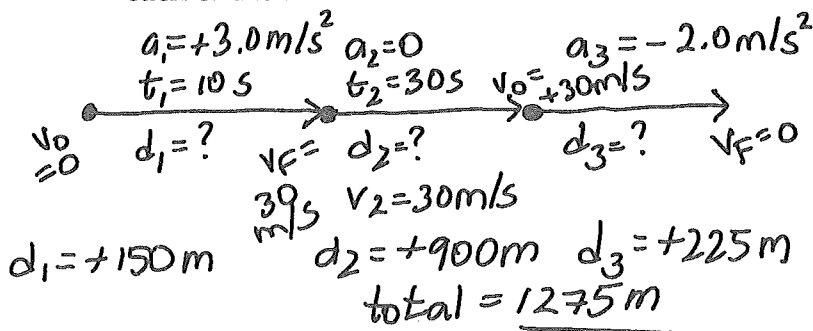 a₁=+3.0m/s² a₂=0 a₃=-2.0m/s²
t₁=10s t₂=30s v₀=+30m/s
v₀=0 d₁=? vF=30m/s d₂=? d₃=? vF=0
v₂=30m/s
d₁=+150m d₂=+900m d₃=+225m
total = 1275m